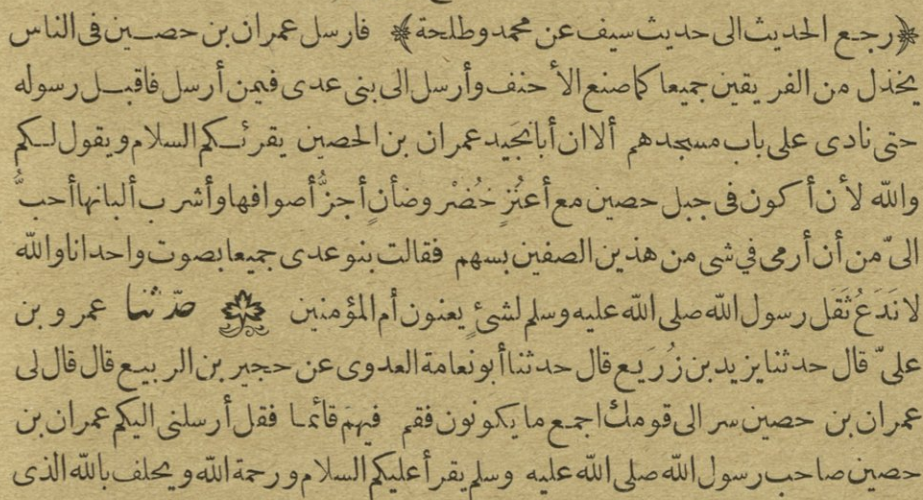 ﴿رجع الحديث الى حديث سيف عن محمد وطلحة﴾ فارسل عمران بن حصين فى الناس
يخذل من الفريقين جميعا كما صنع الأحنف وأرسل الى بنى عدى فيمن أرسل فاقبل رسوله
حتى نادى على باب مسجدهم ألا ان أبا نجيد عمران بن الحصين يقرئكم السلام ويقول لكم
والله لأن أكون فى جبل حصين مع أعنز خُضْر وضأنٍ أجزُّ أصوافها وأشرب ألبانها أحبُّ
الىّ من أن أرمى في شى من هذين الصفين بسهم فقالت بنو عدى جميعا بصوت واحد انا والله
لا نَدَعُ ثَقَل رسول الله صلى الله عليه وسلم لشئٍ يعنون أم المؤمنين حدّثنا عمرو بن
علىّ قال حدثنا يزيد بن زُرَيع قال حدثنا أبو نعامة العدوى عن حجير بن الربيع قال قال لى
عمران بن حصين سر الى قومك اجمع ما يكونون فقم فيهم قائما فقل أرسلنى اليكم عمران بن
حصين صاحب رسول الله صلى الله عليه وسلم يقرأ عليكم السلام ورحمة الله ويحلف بالله الذى